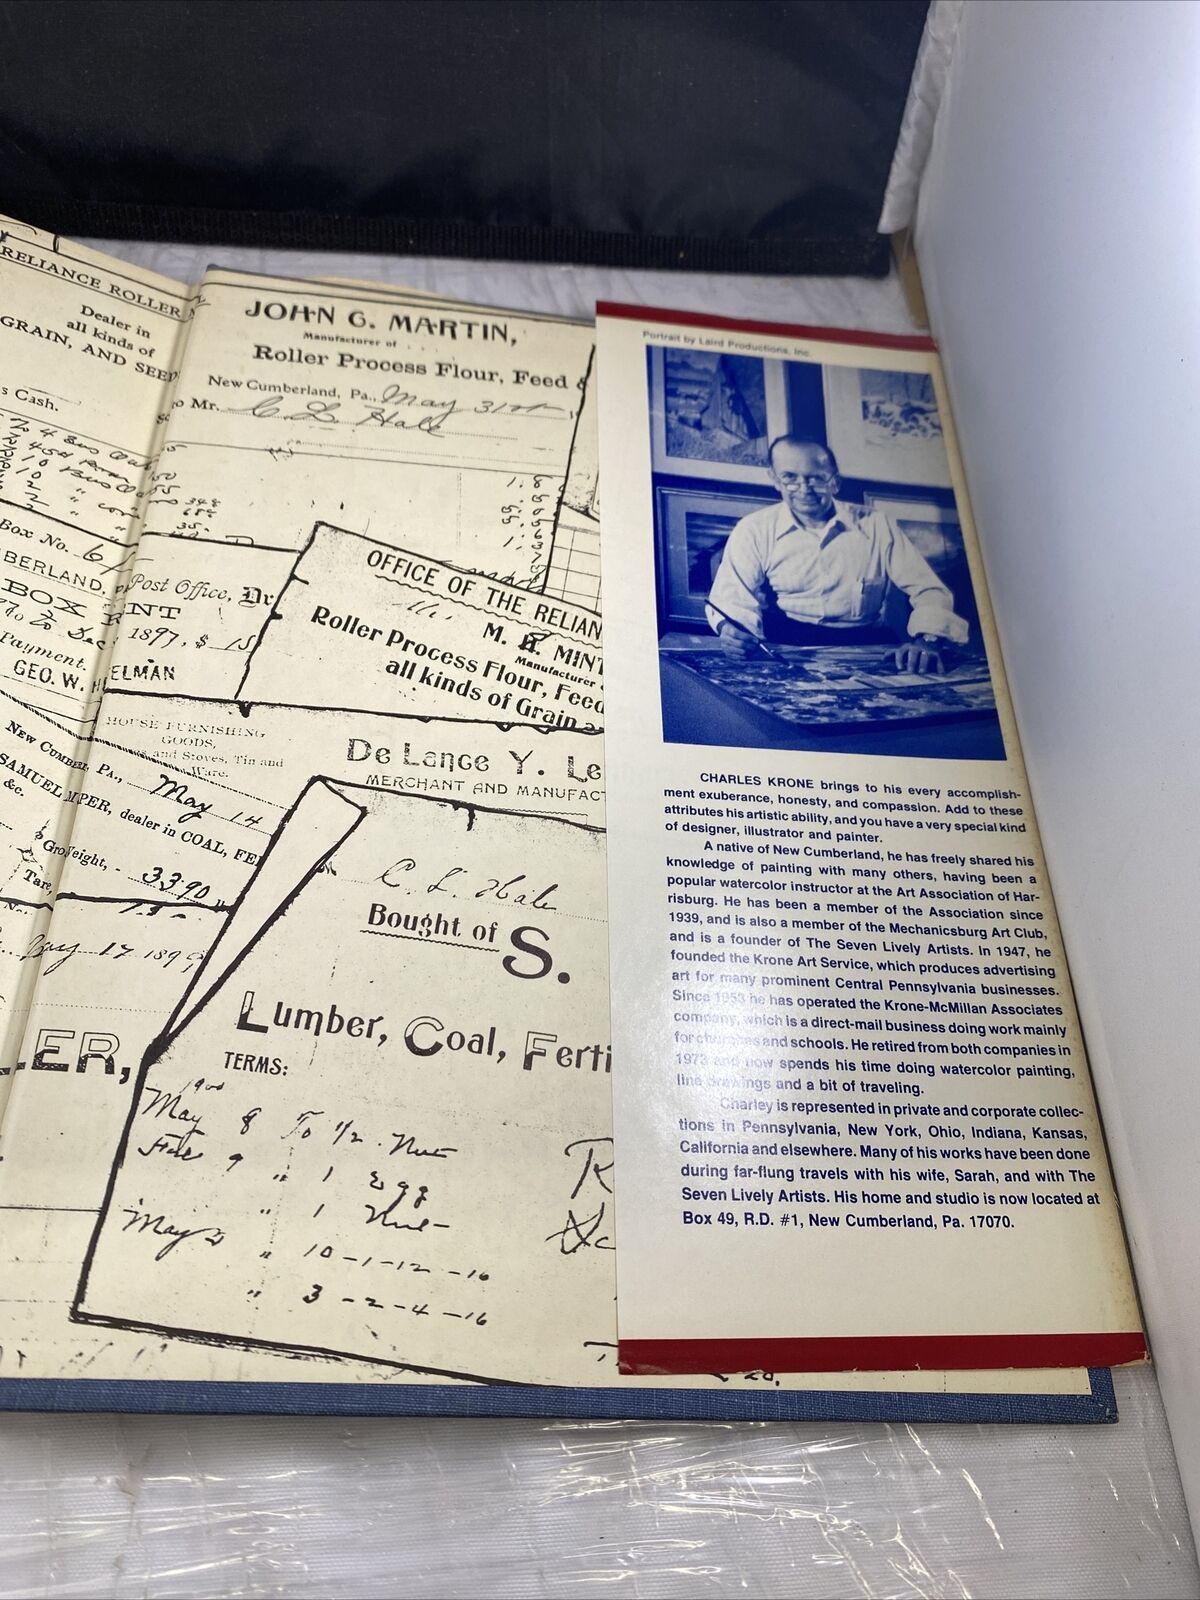 RELIANCE ROLLER
Dealer in
all kinds of
GRAIN, AND SEED
s Cash.
Box No. 61
BERLAND,
BOX
Payment.
GEO. W. H
NEW CUMBER
SAMUEL
&c.
JOHN G. MARTIN,
Manufacturer of
Roller Process Flour, Feed &
New Cumberland, Pa., May 31st
to Mr. C. L. Hale
Post Office, Dr
NT
1897, $ 15
ELMAN
HOUSE FURNISHING
GOODS,
and Stoves, Tin and
Ware.
PA., May 14
MPER, dealer in COAL, FE
Gro Weight, - 3390
Tare,
May 17 1899
LER,
OFFICE OF THE RELIAN
M. H. MINT
Manufacturer
Roller Process Flour, Feed
all kinds of Grain a
De Lance Y. Le
MERCHANT AND MANUFACT
C. L. Hale
Bought of S.
Lumber, Coal, Ferti
TERMS:
May 8 To 1/2 Nut
9 " 1 Egg
" 1 Nut
May " 10-1-12-16
" 3-2-4-16
Portrait by Laird Productions, Inc.
CHARLES KRONE brings to his every accomplish-
ment exuberance, honesty, and compassion. Add to these
attributes his artistic ability, and you have a very special kind
of designer, illustrator and painter.
A native of New Cumberland, he has freely shared his
knowledge of painting with many others, having been a
popular watercolor instructor at the Art Association of Har-
risburg. He has been a member of the Association since
1939, and is also a member of the Mechanicsburg Art Club,
and is a founder of The Seven Lively Artists. In 1947, he
founded the Krone Art Service, which produces advertising
art for many prominent Central Pennsylvania businesses.
Since 1953 he has operated the Krone-McMillan Associates
company, which is a direct-mail business doing work mainly
for churches and schools. He retired from both companies in
1973 and now spends his time doing watercolor painting,
line drawings and a bit of traveling.
Charley is represented in private and corporate collec-
tions in Pennsylvania, New York, Ohio, Indiana, Kansas,
California and elsewhere. Many of his works have been done
during far-flung travels with his wife, Sarah, and with The
Seven Lively Artists. His home and studio is now located at
Box 49, R.D. #1, New Cumberland, Pa. 17070.